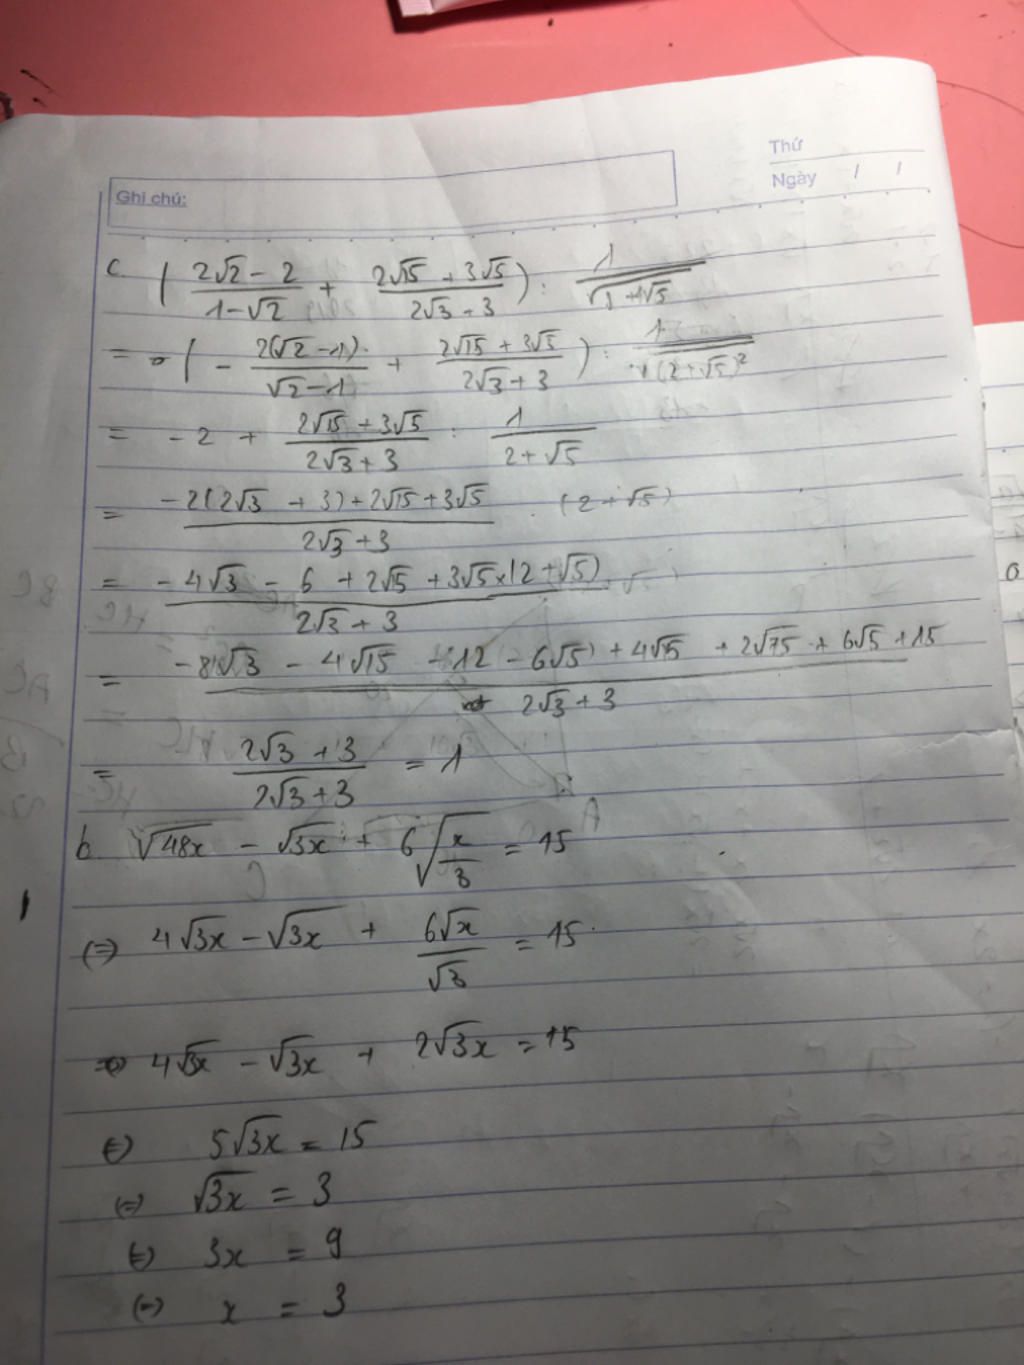 Thứ
Ngày / /
Ghi chú:
c. ( (2√2 - 2)/(1-√2) + (2√15 + 3√5)/(2√3 + 3) ) : 1/
= ( - 2(√2 - 1)/(√2 - 1) + (2√15 + 3√5)/(2√3 + 3) ) : 1/√(2+√5)²
= - 2 + (2√15 + 3√5)/(2√3 + 3) : 1/(2 + √5)
= (-2(2√3 + 3) + 2√15 + 3√5)/(2√3 + 3) . (2 + √5)
= (-4√3 - 6 + 2√15 + 3√5 x (2 + √5))/(2√3 + 3)
= (-8√3 - 4√15 - 12 - 6√5 + 4√15 + 2√75 + 6√5 + 15)/(2√3 + 3)
= (2√3 + 3)/(2√3 + 3) = 1
b. √48x - √3x + 6√(x/3) = 15
(=) 4√3x - √3x + 6√x/√3 = 15
(=) 4√3x - √3x + 2√3x = 15
(=) 5√3x = 15
(=) √3x = 3
(=) 3x = 9
(=) x = 3